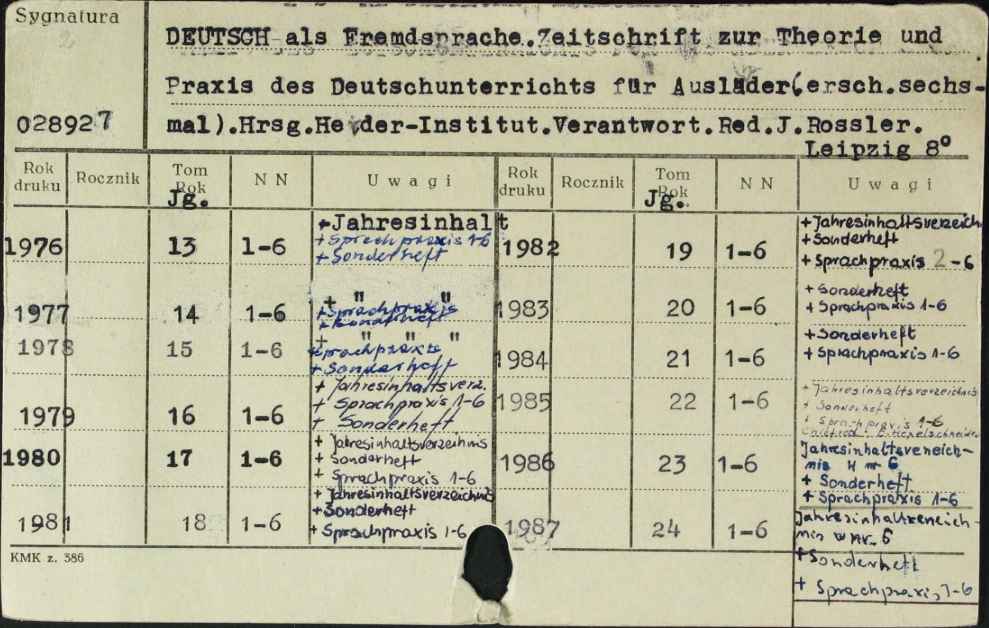 Sygnatura
DEUTSCH als Fremdsprache.Zeitschrift zur Theorie und
Praxis des Deutschunterrichts für Ausläder(ersch.sechs-
028927
mal).Hrsg.Herder-Institut.Verantwort.Red.J.Rossler.
Leipzig 8°
Rok druku Rocznik Tom Rok NN Uwagi Rok druku Rocznik Tom Rok NN Uwagi
Jg. Jg.
1976 13 1-6 +Jahresinhalt
+ Sprachpraxis 1-6
+ Sonderheft
1977 14 1-6 + " "
+ Sprachpraxis
+ Sonderheft
1978 15 1-6 + " " "
+ Sprachpraxis
+ Sonderheft
1979 16 1-6 + Jahresinhaltsverz.
+ Sprachpraxis 1-6
+ Sonderheft
1980 17 1-6 + Jahresinhaltsverzeichnis
+ Sonderheft
+ Sprachpraxis 1-6
1981 18 1-6 + Jahresinhaltsverzeichnis
+ Sonderheft
+ Sprachpraxis 1-6
1982 19 1-6 + Jahresinhaltsverzeich
+ Sonderheft
+ Sprachpraxis 2-6
1983 20 1-6 + Sonderheft
+ Sprachpraxis 1-6
1984 21 1-6 + Sonderheft
+ Sprachpraxis 1-6
1985 22 1-6 + Jahresinhaltsverzeichnis
+ Sonderheft
+ Sprachpraxis 1-6
1986 23 1-6 Jahresinhaltsveneich-
nis w nr 6
+ Sonderheft
+ Sprachpraxis 1-6
1987 24 1-6 Jahresinhaltveneich
nin w Nr. 6
+ Sonderheft
+ Sprachpraxis 1-6
KMK z. 386